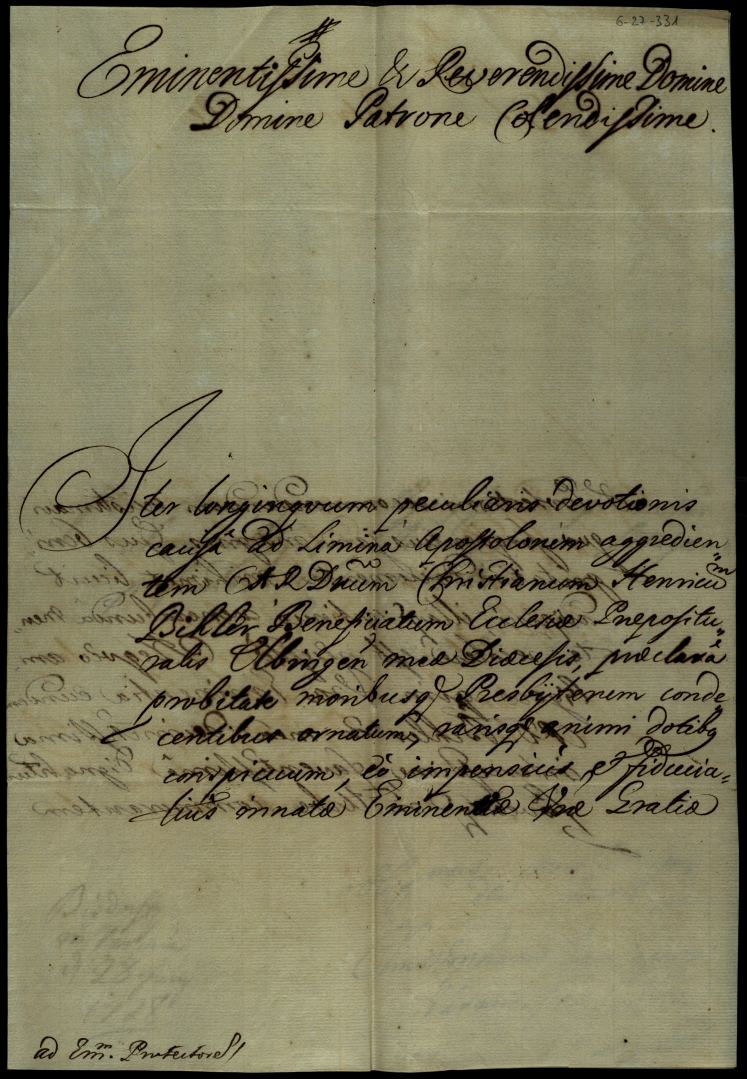 6-27-331
Eminentissime & Reverendissime Domine
Domine Patrone Colendissime.
Iter longinquum peculiaris devotionis
causâ ad Limina Apostolorum aggredien„
tem A R Dnum Christianum Henricum
Bihler Beneficiatum Ecclesiæ Præpositu„
ralis Elbingen̄ meæ Diæcesis, præclarâ
probitate moribusq Presbyterum conde„
centibus ornatum, rarisq animi dotibq
conspicuum, eò impensius & fiducia„
lius innatæ Eminentiæ Vræ Gratiæ
ad Emm. Protectore